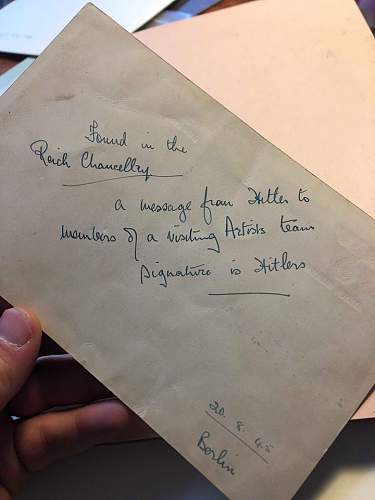 Found in the
Reich Chancellry
a message from Hitler to
members of a visiting Artists team
signature is Hitlers
20. 8. 45
Berlin